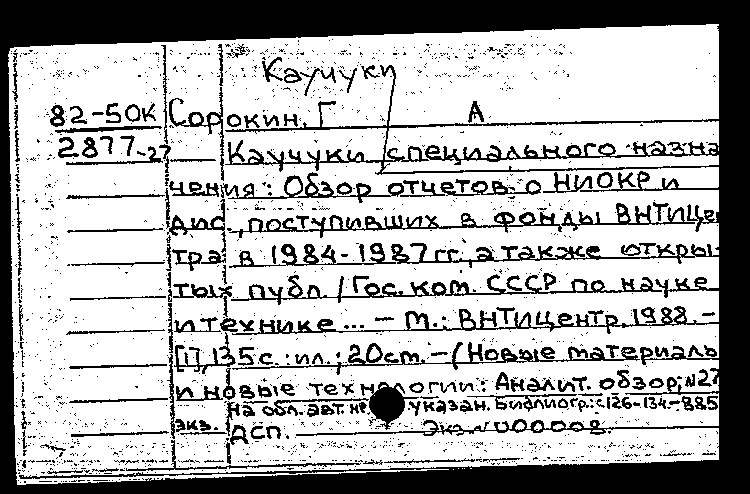 Каучуки
82-50К Сорокин, Г А
2877-27 Каучуки специального назна
чения: Обзор отчетов о НИОКР и
дис., поступивших в фонды ВНТИЦе
тра в 1984-1987гг, а также откры-
тых публ. / Гос. ком. СССР по науке
и технике... - М.: ВНТИцентр, 1988. -
[1], 135с.: ил.; 20см. - (Новые материаль
и новые технологии: Аналит. обзор; №27
На обл. авт. не указан. Библиогр.: с126-134.-885
экз. ДСП. Экз. №000008.